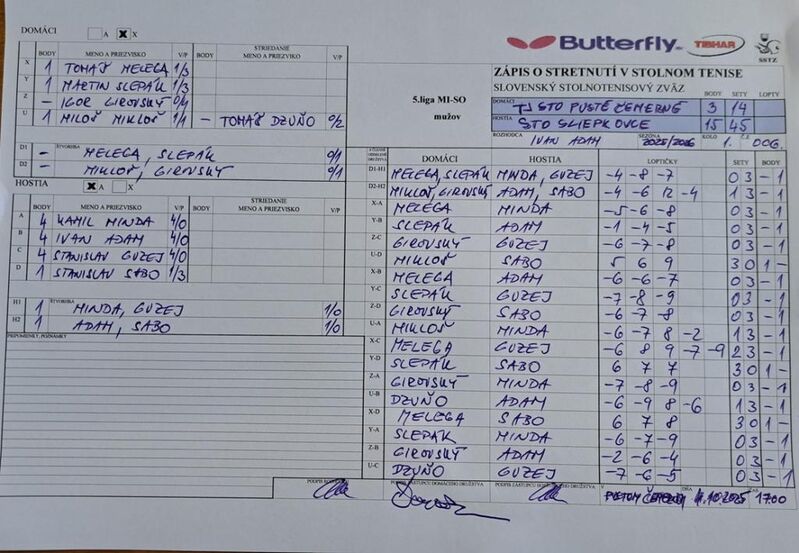 DOMÁCI A X X
BODY MENO A PRIEZVISKO V/P BODY STRIEDANIE MENO A PRIEZVIKO V/P
X 1 TOMÁŠ MELEGA 1/3
Y 1 MARTIN SLEPÁK 1/3
Z - IGOR GIROVSKÝ 0/4
U 1 MILOŠ MIKLOŠ 1/1 - TOMÁŠ DZUŇO 0/2
D1 - ŠTVORHRA MELEGA, SLEPÁK 0/1
D2 - MIKLOŠ, GIROVSKÝ 0/1
HOSTIA X A X
BODY MENO A PRIEZVISKO V/P BODY STRIEDANIE MENO A PRIEZVISKO V/P
A 4 KAMIL MINDA 4/0
B 4 IVAN ADAM 4/0
C 4 STANISLAV GUZEJ 4/0
D 1 STANISLAV SABO 1/3
H1 1 ŠTVORHRA MINDA, GUZEJ 1/0
H2 1 ADAM, SABO 1/0
PRIPOMIENKY, POZNÁMKY
Butterfly TIBHAR SSTZ
ZÁPIS O STRETNUTÍ V STOLNOM TENISE
SLOVENSKÝ STOLNOTENISOVÝ ZVÄZ BODY SETY LOPTY
5.liga MI-SO
mužov
DOMÁCI TJ STO PUSTÉ ČEMERNÉ 3 14
HOSTIA STO SLIEPKOVCE 15 45
ROZHODCA IVAN ADAM SEZÓNA 2025/2026 KOLO 1. Č.S. 006.
DOMÁCI HOSTIA LOPTIČKY SETY BODY
D1-H1 MELEGA, SLEPÁK MINDA, GUZEJ -4 -8 -7 0 3 - 1
D2-H2 MIKLOŠ, GIROVSKÝ ADAM, SABO -4 -6 12 -4 1 3 - 1
X-A MELEGA MINDA -5 -6 -8 0 3 - 1
Y-B SLEPÁK ADAM -1 -4 -5 0 3 - 1
Z-C GIROVSKÝ GUZEJ -6 -7 -8 0 3 - 1
U-D MIKLOŠ SABO 5 6 9 3 0 1 -
X-B MELEGA ADAM -6 -6 -7 0 3 - 1
Y-C SLEPÁK GUZEJ -7 -8 -9 0 3 - 1
Z-D GIROVSKÝ SABO -6 -7 -8 0 3 - 1
U-A MIKLOŠ MINDA -6 -7 8 -2 1 3 - 1
X-C MELEGA GUZEJ -6 8 9 -7 -9 2 3 - 1
Y-D SLEPÁK SABO 6 7 7 3 0 1 -
Z-A GIROVSKÝ MINDA -7 -8 -9 0 3 - 1
U-B DZUŇO ADAM -6 -9 8 -6 1 3 - 1
X-D MELEGA SABO 6 7 8 3 0 1 -
Y-A SLEPÁK MINDA -6 -7 -9 0 3 - 1
Z-B GIROVSKÝ ADAM -2 -6 -4 0 3 - 1
U-C DZUŇO GUZEJ -7 -6 -5 0 3 - 1
PODPIS ZÁSTUPCU DOMÁCEHO DRUŽSTVA V DŇA 10.2025 17.00